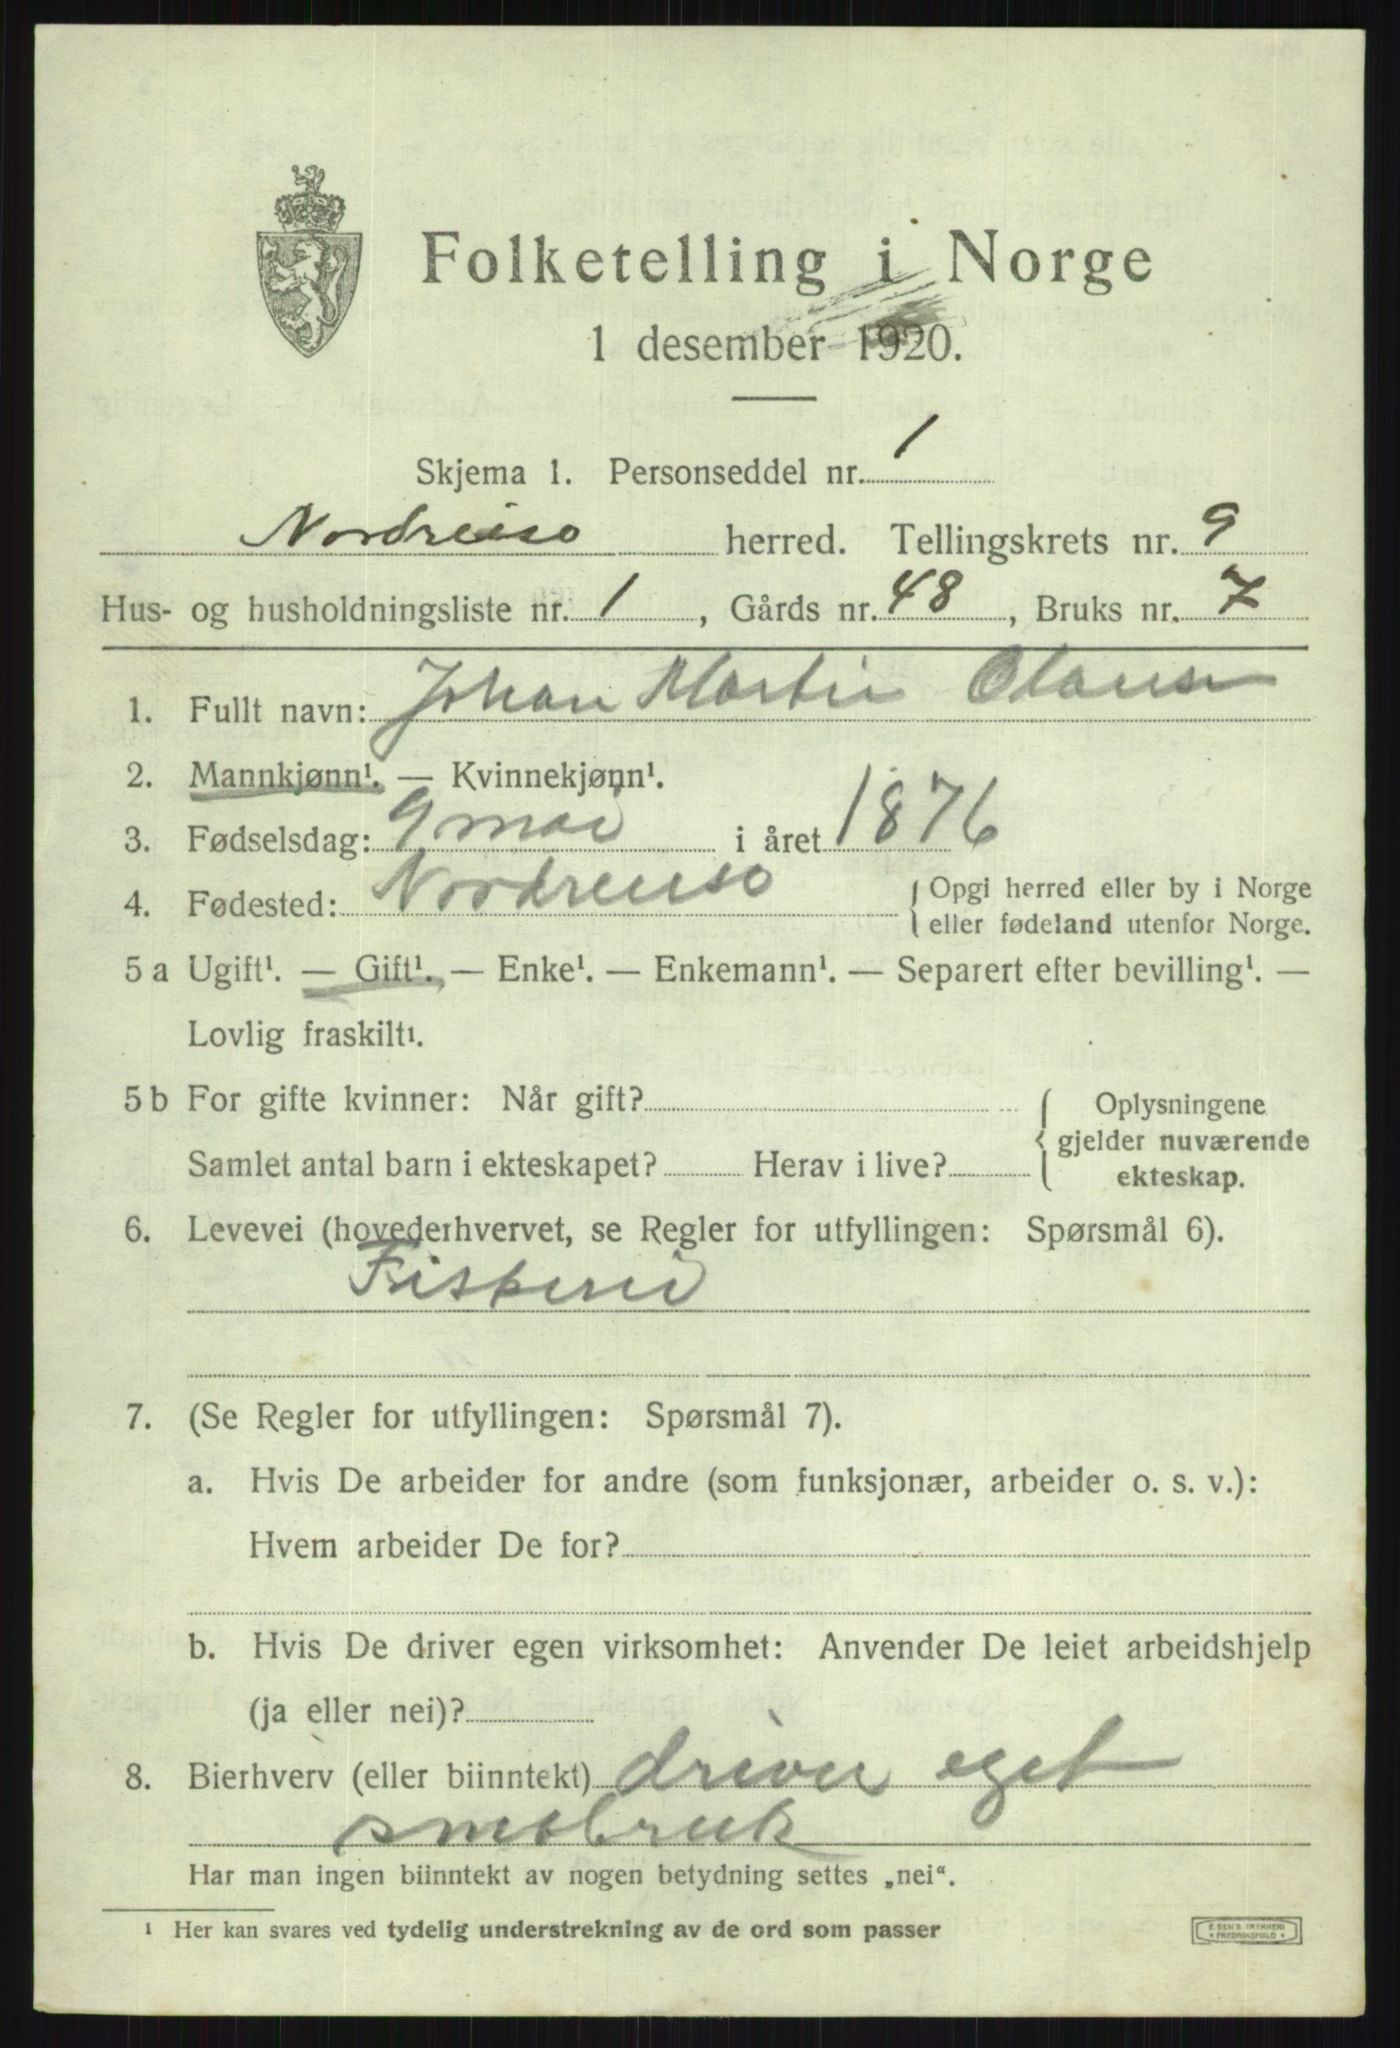 Folketelling i Norge
1 desember 1920.
Skjema 1. Personseddel nr. 1
Nordreiso herred. Tellingskrets nr. 9
Hus- og husholdningsliste nr. 1, Gårds nr. 48, Bruks nr. 7
1. Fullt navn: Johan Martin Olausen
2. Mannkjønn¹. — Kvinnekjønn¹.
3. Fødselsdag: 9 mai i året 1876
4. Fødested: Nordreiso { Opgi herred eller by i Norge
eller fødeland utenfor Norge.
5 a Ugift¹. — Gift¹. — Enke¹. — Enkemann¹. — Separert efter bevilling¹. —
Lovlig fraskilt¹.
5 b For gifte kvinner: Når gift? { Oplysningene
gjelder nuværende
Samlet antal barn i ekteskapet? Herav i live? ekteskap.
6. Levevei (hovederhvervet, se Regler for utfyllingen: Spørsmål 6).
Fiskeri
7. (Se Regler for utfyllingen: Spørsmål 7).
a. Hvis De arbeider for andre (som funksjonær, arbeider o. s. v.):
Hvem arbeider De for?
b. Hvis De driver egen virksomhet: Anvender De leiet arbeidshjelp
(ja eller nei)?
8. Bierhverv (eller biinntekt) driver eget
småbruk
Har man ingen biinntekt av nogen betydning settes „nei“.
¹ Her kan svares ved tydelig understrekning av de ord som passer
E. SEM'S TRYKKERI
* FREDRIKSHALD *